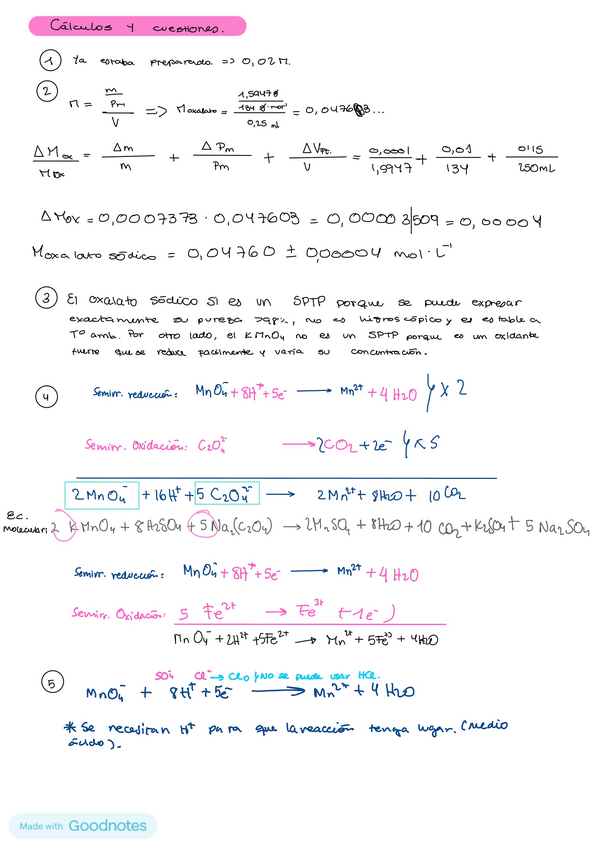 Cálculos y cuestiones.
① Ya estaba preparado. => 0,02M.
② M = (m / Pm) / V => M oxalato = (1,5947 g / 134 g·mol⁻¹) / 0,25 ml = 0,047603...
ΔMox / Mox = Δm / m + ΔPm / Pm + ΔVPt. / V = 0,0001 / 1,5947 + 0,01 / 134 + 0,15 / 250mL
ΔMox = 0,0007373 · 0,047603 = 0,00003509 = 0,00004
Moxalato sódico = 0,04760 ± 0,00004 mol·L⁻¹
③ El oxalato sódico SI es un SPTP porque se puede expresar
exactamente su pureza >98%, no es higroscópico y es estable a
Tº amb. Por otro lado, el KMnO₄ no es un SPTP porque es un oxidante
fuerte que se reduce facilmente y varía su concentración.
④ Semirr. reducción: MnO₄⁻ + 8H⁺ + 5e⁻ → Mn²⁺ + 4 H₂O } x 2
Semirr. Oxidación: C₂O₄²⁻ → 2CO₂ + 2e⁻ } x 5
2 MnO₄⁻ + 16H⁺ + 5 C₂O₄²⁻ → 2Mn²⁺ + 8H₂O + 10 CO₂
Ec.
Molecular: 2 KMnO₄ + 8H₂SO₄ + 5 Na₂(C₂O₄) → 2MnSO₄ + 8H₂O + 10 CO₂ + K₂SO₄ + 5 Na₂SO₄
Semirr. reducción: MnO₄⁻ + 8H⁺ + 5e⁻ → Mn²⁺ + 4 H₂O
Semirr. Oxidación: 5 Fe²⁺ → Fe³⁺ (+1e⁻)
MnO₄⁻ + 2H²⁺ + 5Fe²⁺ → Mn²⁺ + 5Fe³⁺ + 4H₂O
Cl⁻ → ClO y NO se puede usar HCl.
⑤ MnO₄⁻ + 8H⁺ + 5e⁻ → Mn²⁺ + 4 H₂O
* Se necesitan H⁺ para que la reacción tenga lugar. (medio
ácido).
Made with Goodnotes